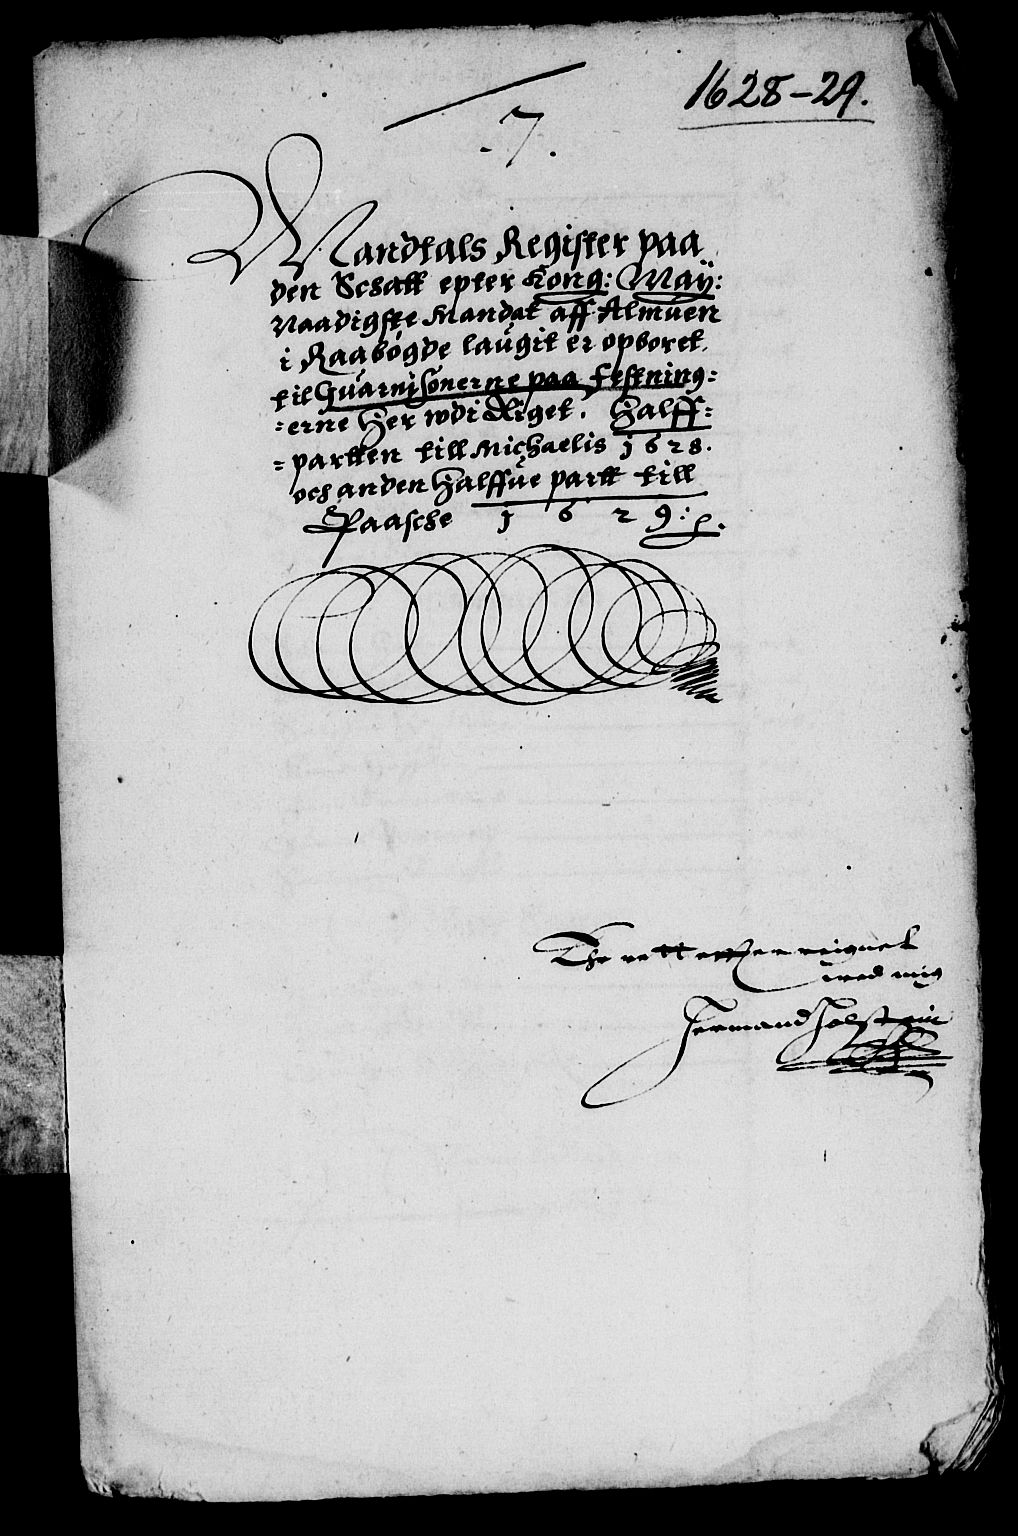 1628-29.
.7.
Mandtals Register paa
den Schatt epter Kong: Maÿ:
Naadigste Mandat aff Almuen
i Raabögde laügit er opboret
til Guarnisonerne paa festning:
=erne Her wdi Riget. Halff=
=partten till Michaelis 1628.
och anden Halffüe partt till
Paasche 1629:
Hermand Holstein